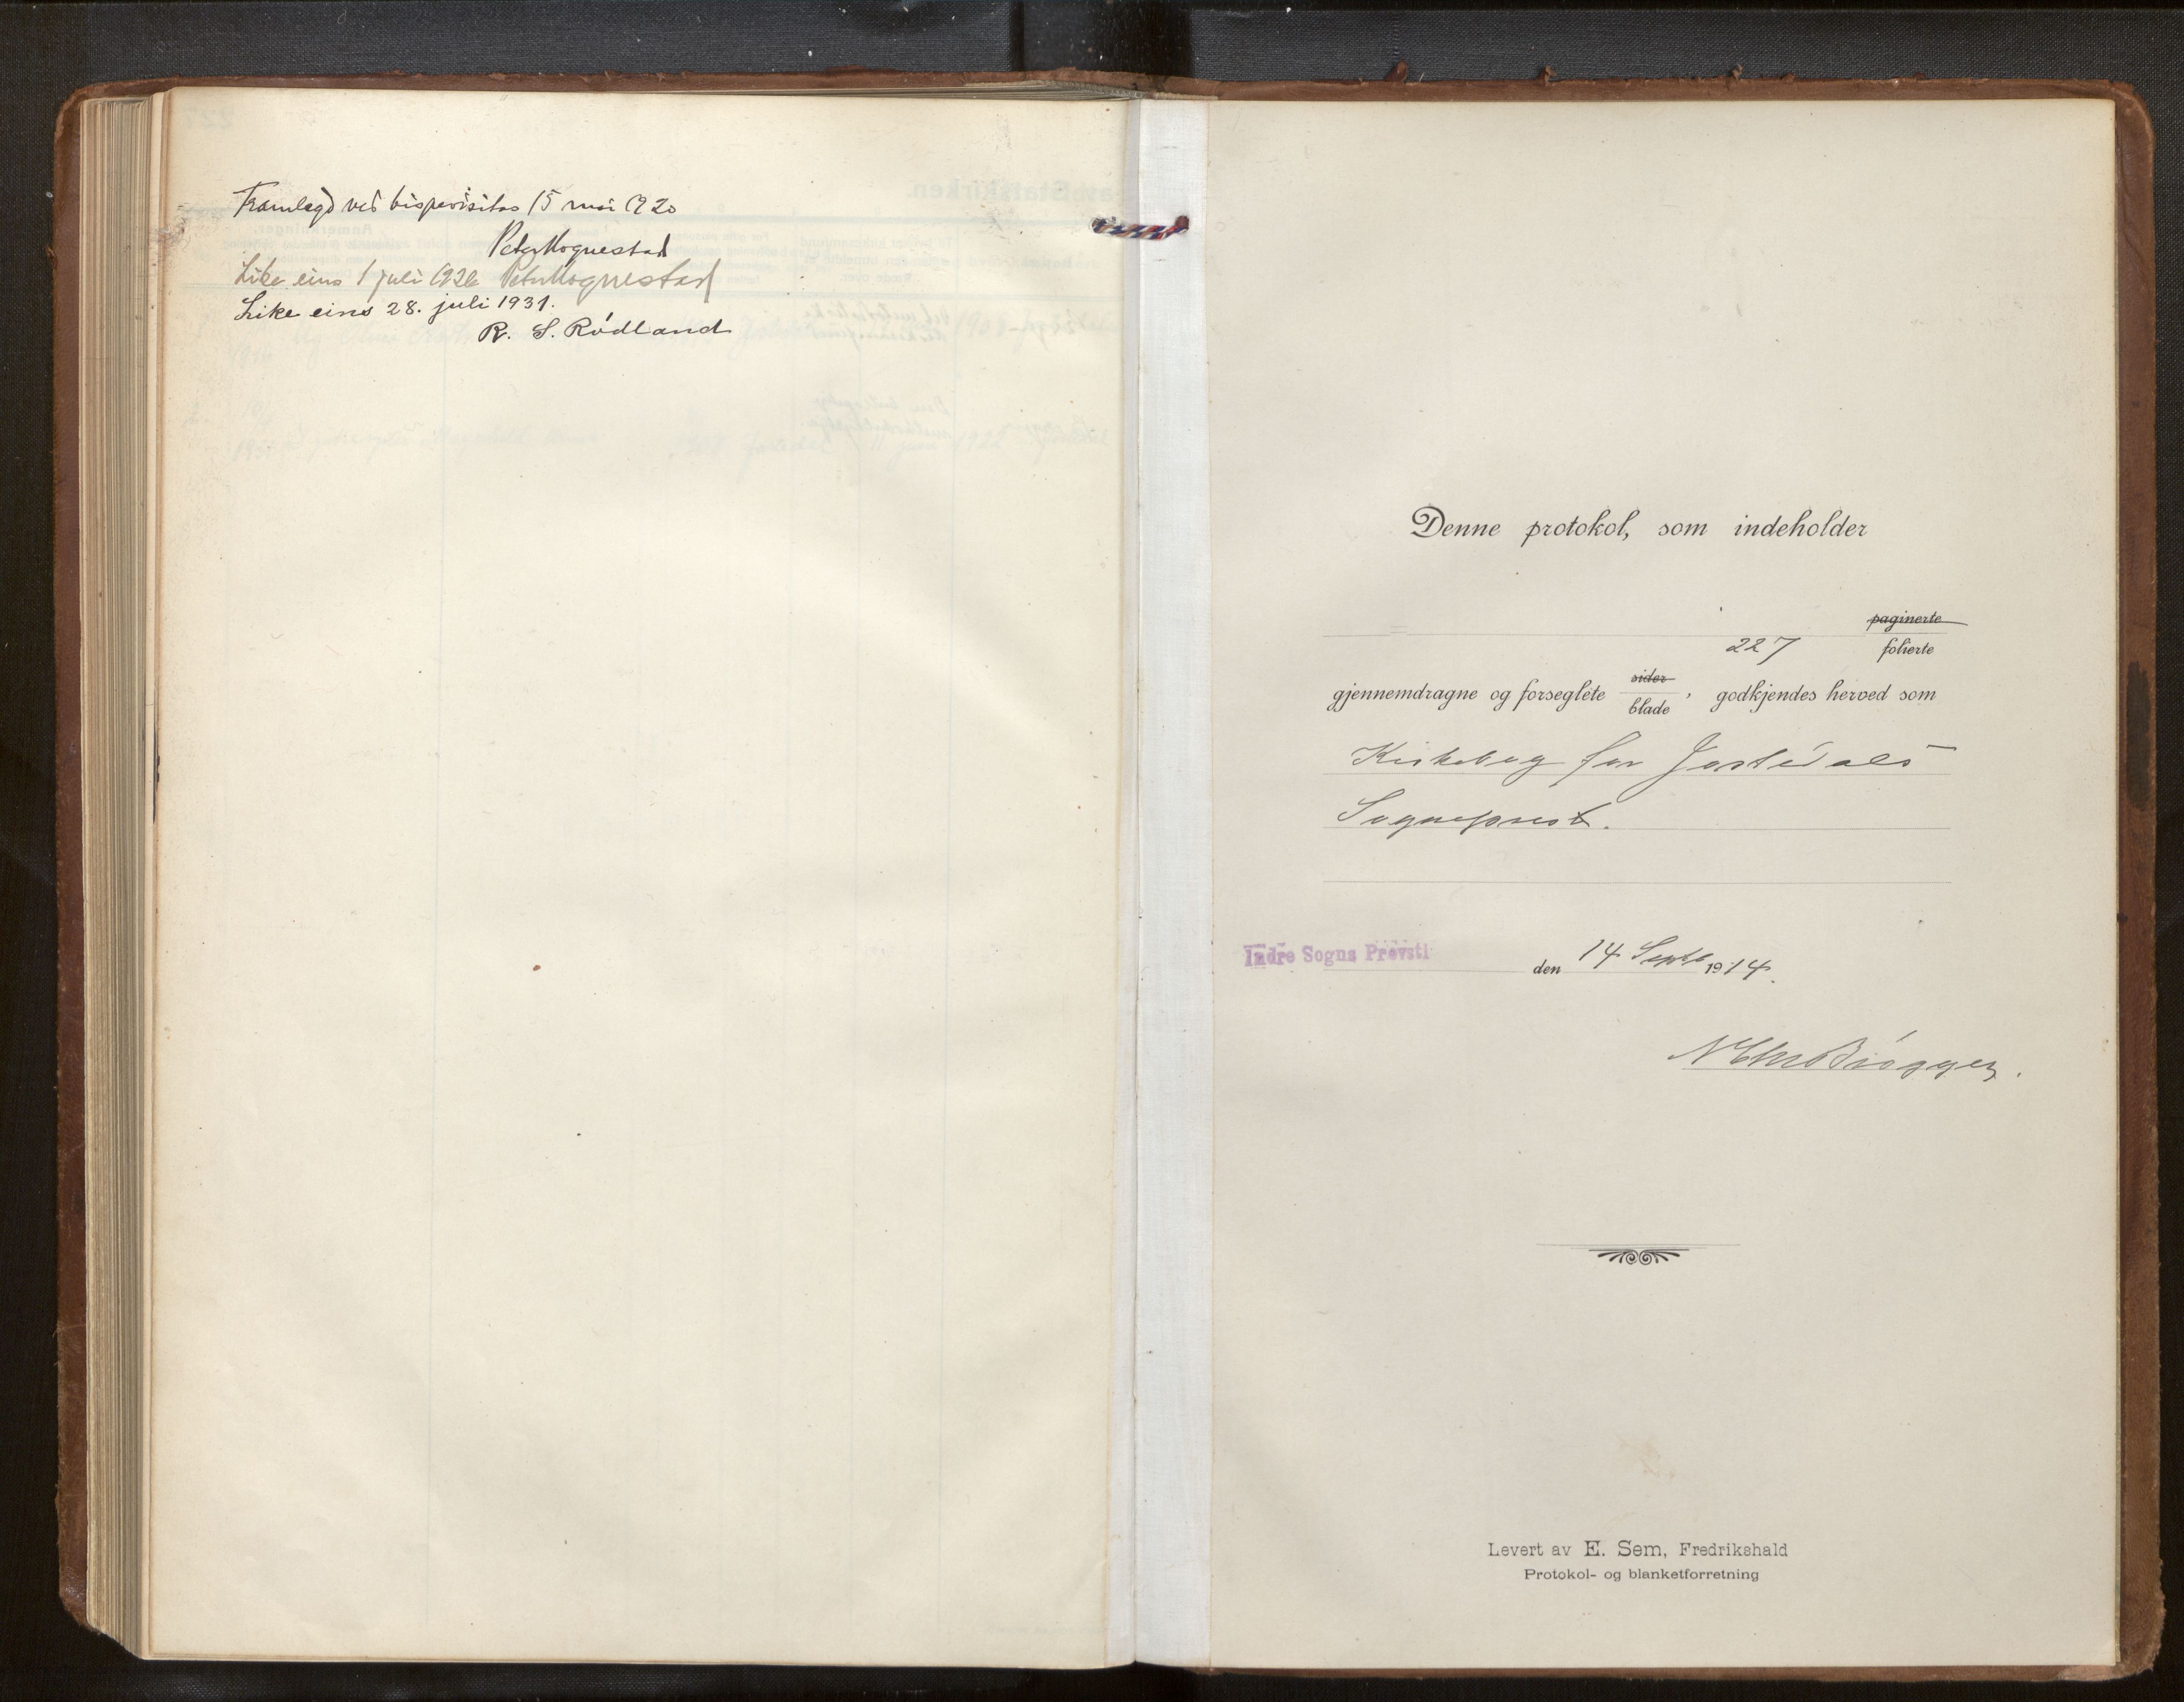 Framlegd ved bispevisitas 15 mai 1920
Peter Hognestad
Like eins 1 juli 1926 Peter Hognestad
Like eins 28. juli 1931.
R. S. Rødland
Denne protokol, som indeholder
paginerte
227 folierte
sider
gjennemdragne og forseglete blade, godkjendes herved som
Kirkebog for Jostedals
Sogneprest.
Indre Sogns Prøvsti
den 14 Septb 1914.
N Chr Brøgger.
Levert av E. Sem, Fredrikshald
Protokol- og blanketforretning